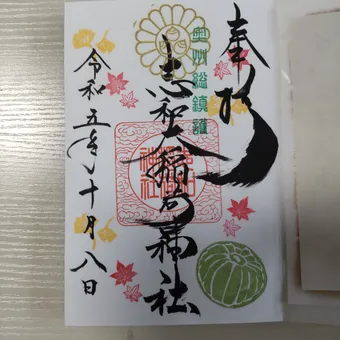 奉拝
奥州総鎮護
志和稲荷神社
令和五年十月八日